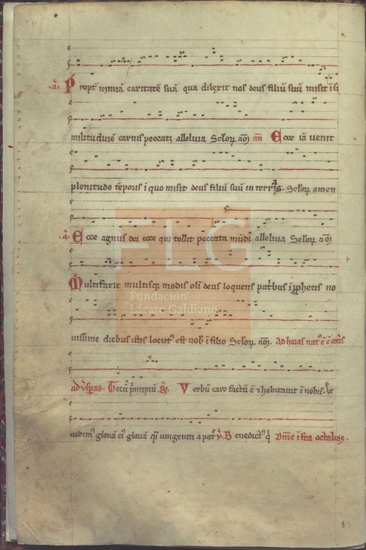 Propt nimia caritate sua qua dilexit nos deus filiu suu misit i si
militudine carnis peccati alleluia Sclor amen an Ecce ia uenit
plenitudo temporis i quo misit deus filiu suu in terras. Sclor amen
a Ecce agnus dei ecce qui tollit peccata mudi alleluia Sclor am
Multifarie multisq modis oli deus loquens patribus i pphetis no
uissime diebus istis locut est nob i filio Sclor am. Ad horas
ad uspas. Tecu pncipiu Uerbu caro factu e & habitauit i nobis. &
uidim gloria ei gloria qsi unigeniti a patre Benedict q
Fundación
Lázaro Galdiano